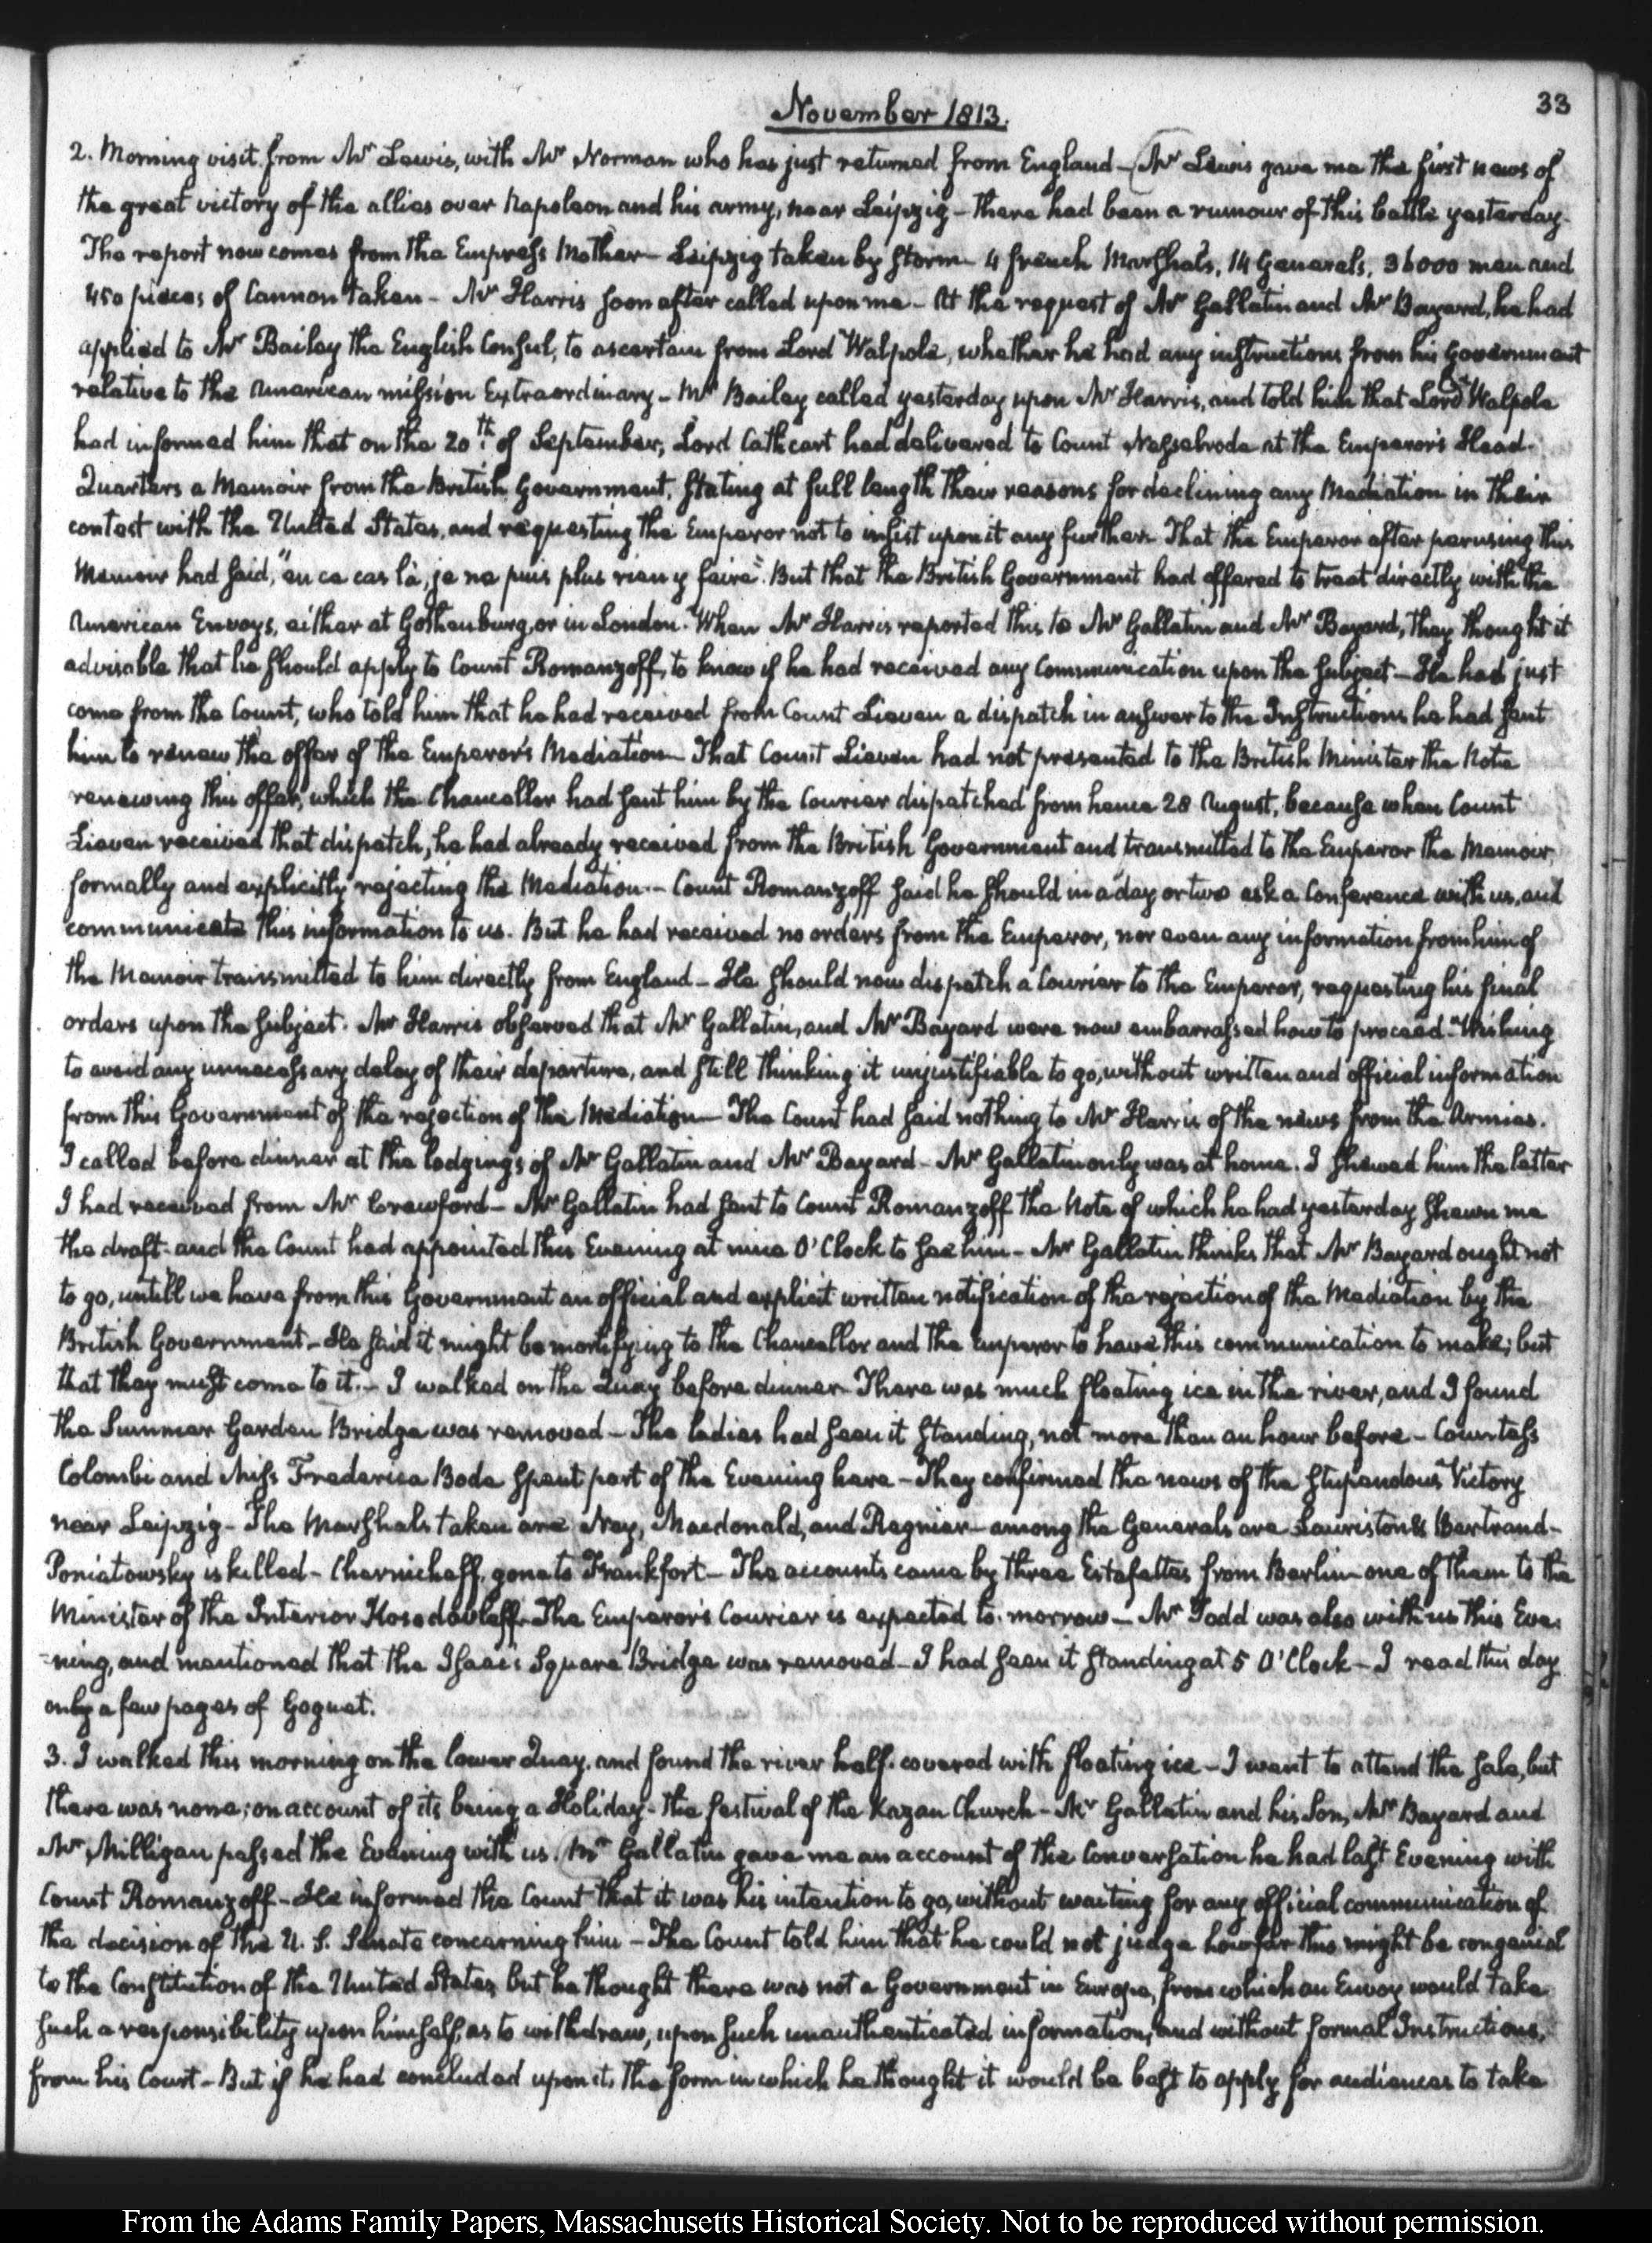 November 1813.
33
2. Morning visit from Mr Lewis, with Mr Norman who has just returned from England — Mr Lewis gave me the first news of
the great victory of the allies over Napoleon and his army, near Leipzig — There had been a rumour of this battle yesterday.
The report now comes from the Empress Mother — Leipzig taken by storm — 4 french Marshals, 14 Generals, 36000 men and
450 pieces of Cannon taken — Mr Harris soon after called upon me — At the request of Mr Gallatin and Mr Bayard, he had
applied to Mr Bailey the English Consul, to ascertain from Lord Walpole, whether he had any instructions from his Government
relative to the American mission Extraordinary — Mr Bailey called yesterday upon Mr Harris, and told him that Lord Walpole
had informed him that on the 20th of September, Lord Cathcart had delivered to Count Nesselrode at the Emperor's Head-
Quarters a Memoir from the British Government, stating at full length their reasons for declining any Mediation in their
contest with the United States, and requesting the Emperor not to insist upon it any further — That the Emperor after perusing this
Memoir had said, "en ce cas là, je ne puis plus rien y faire". But that the British Government had offered to treat directly with the
American Envoys, either at Gothenburg, or in London. When Mr Harris reported this to Mr Gallatin and Mr Bayard, they thought it
advisable that he should apply to Count Romanzoff, to know if he had received any Communication upon the subject — He had just
come from the Count, who told him that he had received from Count Lieven a dispatch in answer to the Instructions he had sent
him to renew the offer of the Emperor's Mediation — That Count Lieven had not presented to the British Minister the Note
renewing this offer, which the Chancellor had sent him by the Courier dispatched from hence 28 August, because when Count
Lieven received that dispatch, he had already received from the British Government and transmitted to the Emperor the Memoir,
formally and explicitly rejecting the Mediation. — Count Romanzoff said he should in a day or two ask a Conference with us, and
communicate this information to us. But he had received no orders from the Emperor, nor even any information from him of
the Memoir transmitted to him directly from England — He should now dispatch a Courier to the Emperor, requesting his final
orders upon the subject. Mr Harris observed that Mr Gallatin, and Mr Bayard were now embarrassed how to proceed — Wishing
to avoid any unnecessary delay of their departure, and still thinking it unjustifiable to go, without written and official information
from this Government of the rejection of the Mediation — The Count had said nothing to Mr Harris of the news from the Armies.
I called before dinner at the lodgings of Mr Gallatin and Mr Bayard — Mr Gallatin only was at home. I shewed him the letter
I had received from Mr Crawford — Mr Gallatin had sent to Count Romanzoff the Note of which he had yesterday shewn me
the draft — and the Count had appointed this Evening at nine O'Clock to see him — Mr Gallatin thinks that Mr Bayard ought not
to go, untill we have from this Government an official and explicit written notification of the rejection of the Mediation by the
British Government — He said it might be mortifying to the Chancellor and the Emperor to have this communication to make; but
that they must come to it. — I walked on the Quay before dinner — There was much floating ice in the river, and I found
the Summer Garden Bridge was removed — The ladies had seen it standing, not more than an hour before — Countess
Colombi and Miss Frederica Bode spent part of the Evening here — They confirmed the news of the stupendous Victory
near Leipzig — The Marshals taken are Ney, Macdonald, and Regnier — among the Generals are Lauriston & Bertrand —
Poniatowsky is killed — Chernicheff, gone to Frankfort — The accounts came by three Estafettes from Berlin — one of them to the
Minister of the Interior Kosodavleff — The Emperor's Courier is expected to-morrow — Mr Todd was also with us this Eve-
-ning, and mentioned that the Isaac's Square Bridge was removed — I had seen it standing at 5 O'Clock — I read this day
only a few pages of Goguet.
3. I walked this morning on the lower Quay, and found the river half-covered with floating ice — I went to attend the sale, but
there was none; on account of its being a Holiday — the festival of the Kazan Church — Mr Gallatin and his Son, Mr Bayard and
Mr Milligan passed the Evening with us. Mr Gallatin gave me an account of the Conversation he had last Evening with
Count Romanzoff — He informed the Count that it was his intention to go, without waiting for any official communication of
the decision of the U. S. Senate concerning him — The Count told him that he could not judge how far this might be congenial
to the Constitution of the United States, but he thought there was not a Government in Europe, from which an Envoy would take
such a responsibility upon himself, as to withdraw, upon such unauthenticated information, and without formal Instructions,
from his Court — But if he had concluded upon it, the form in which he thought it would be best to apply for audiences to take
From the Adams Family Papers, Massachusetts Historical Society. Not to be reproduced without permission.